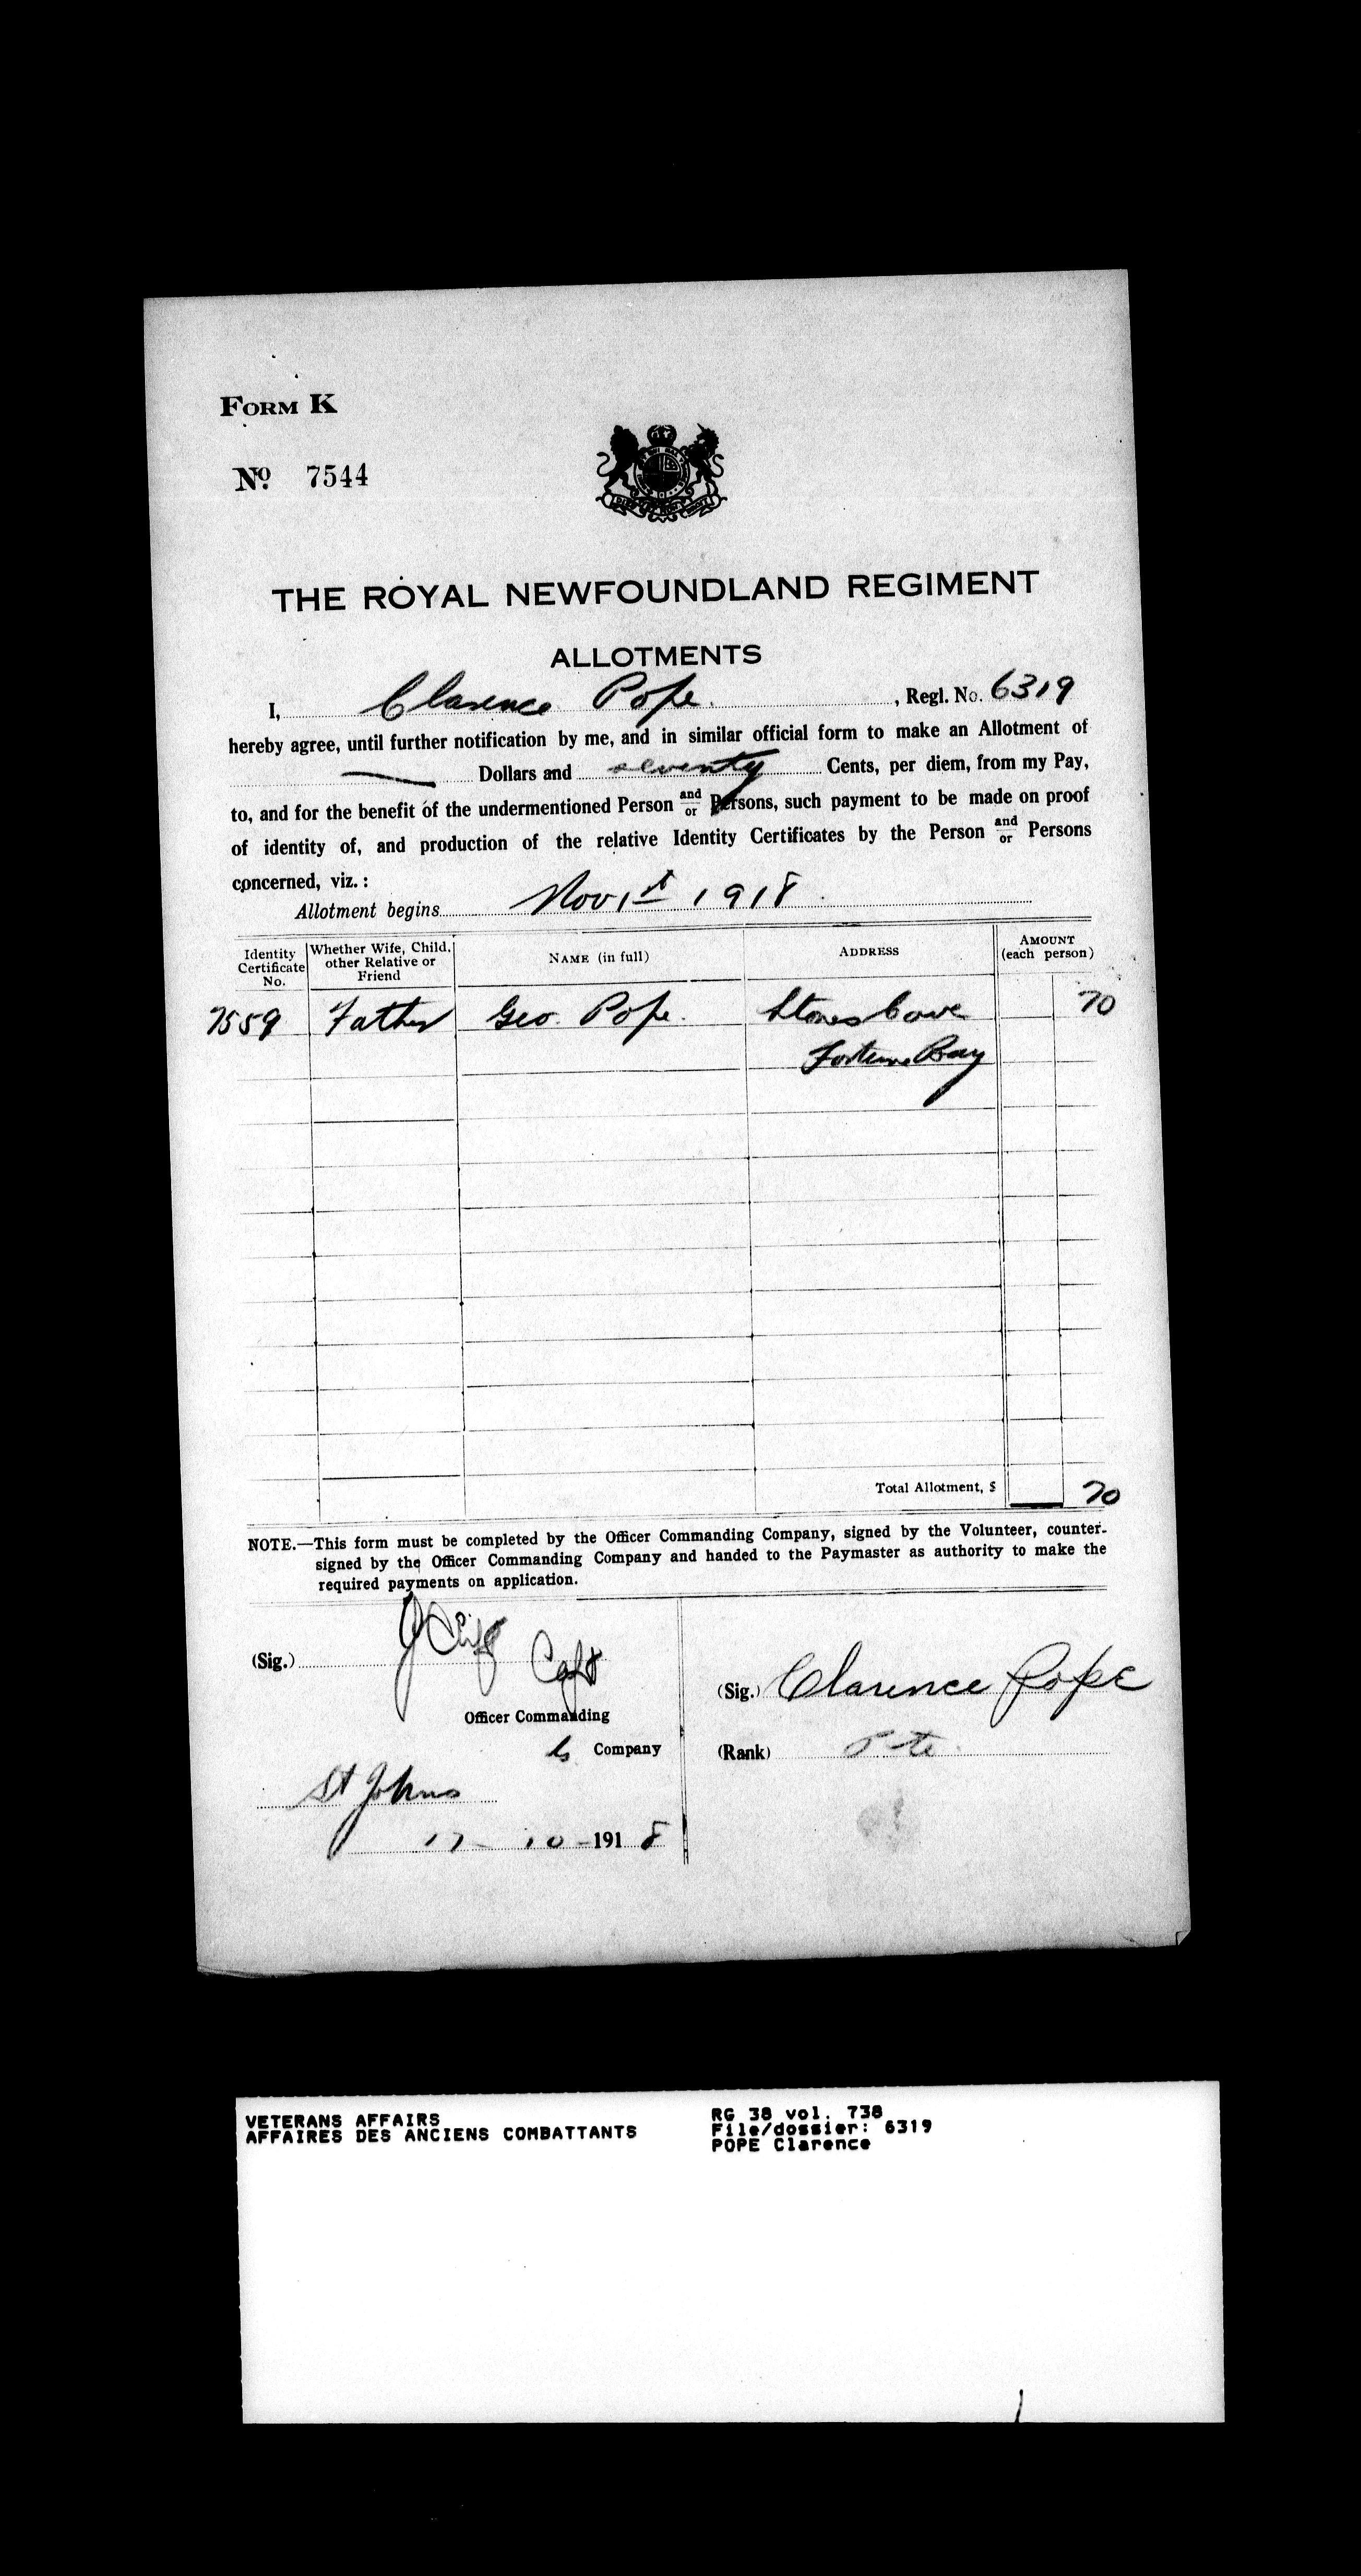 FORM K
No. 7544
THE ROYAL NEWFOUNDLAND REGIMENT
ALLOTMENTS
I, Clarence Pope. , Regl. No. 6319
hereby agree, until further notification by me, and in similar official form to make an Allotment of
— Dollars and seventy Cents, per diem, from my Pay,
to, and for the benefit of the undermentioned Person and/or Persons, such payment to be made on proof
of identity of, and production of the relative Identity Certificates by the Person and/or Persons
concerned, viz. :
Allotment begins Nov 1st 1918
Identity Certificate No. Whether Wife, Child, other Relative or Friend NAME (in full) ADDRESS AMOUNT (each person)
7559 Father Geo. Pope. Stones Cove 70
Fortune Bay
Total Allotment, $ 70
NOTE.—This form must be completed by the Officer Commanding Company, signed by the Volunteer, counter-
signed by the Officer Commanding Company and handed to the Paymaster as authority to make the
required payments on application.
(Sig.) Capt
Officer Commanding
Company
St Johns
17 - 10 - 1918
(Sig.) Clarence Pope
(Rank) Pte.
VETERANS AFFAIRS
AFFAIRES DES ANCIENS COMBATTANTS
RG 38 vol. 738
File/dossier: 6319
POPE Clarence